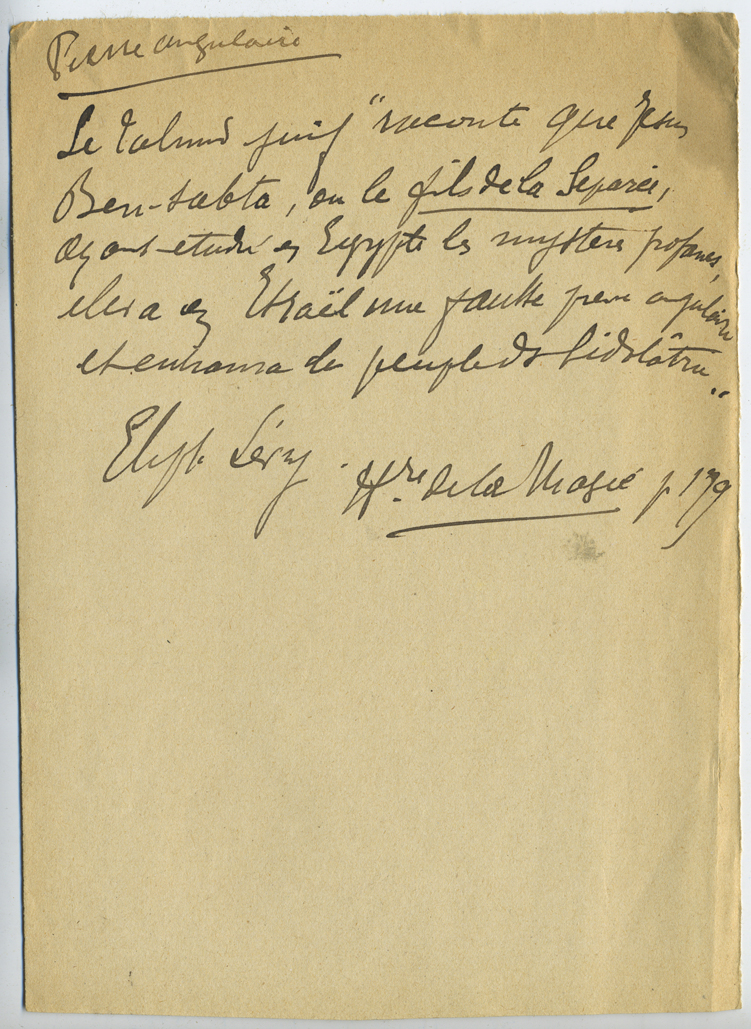 Pierre angulaire
Le Talmud juif "raconte que Jésus
Ben-sabta, ou le fils de la Séparée,
ayant etudié en Egypte les mystères profanes,
eleva en Israël une fausse pierre angulaire
et entraina le peuple ds l'idolâtrie."
Eliph. Lévy. Hre de la Magie p 179